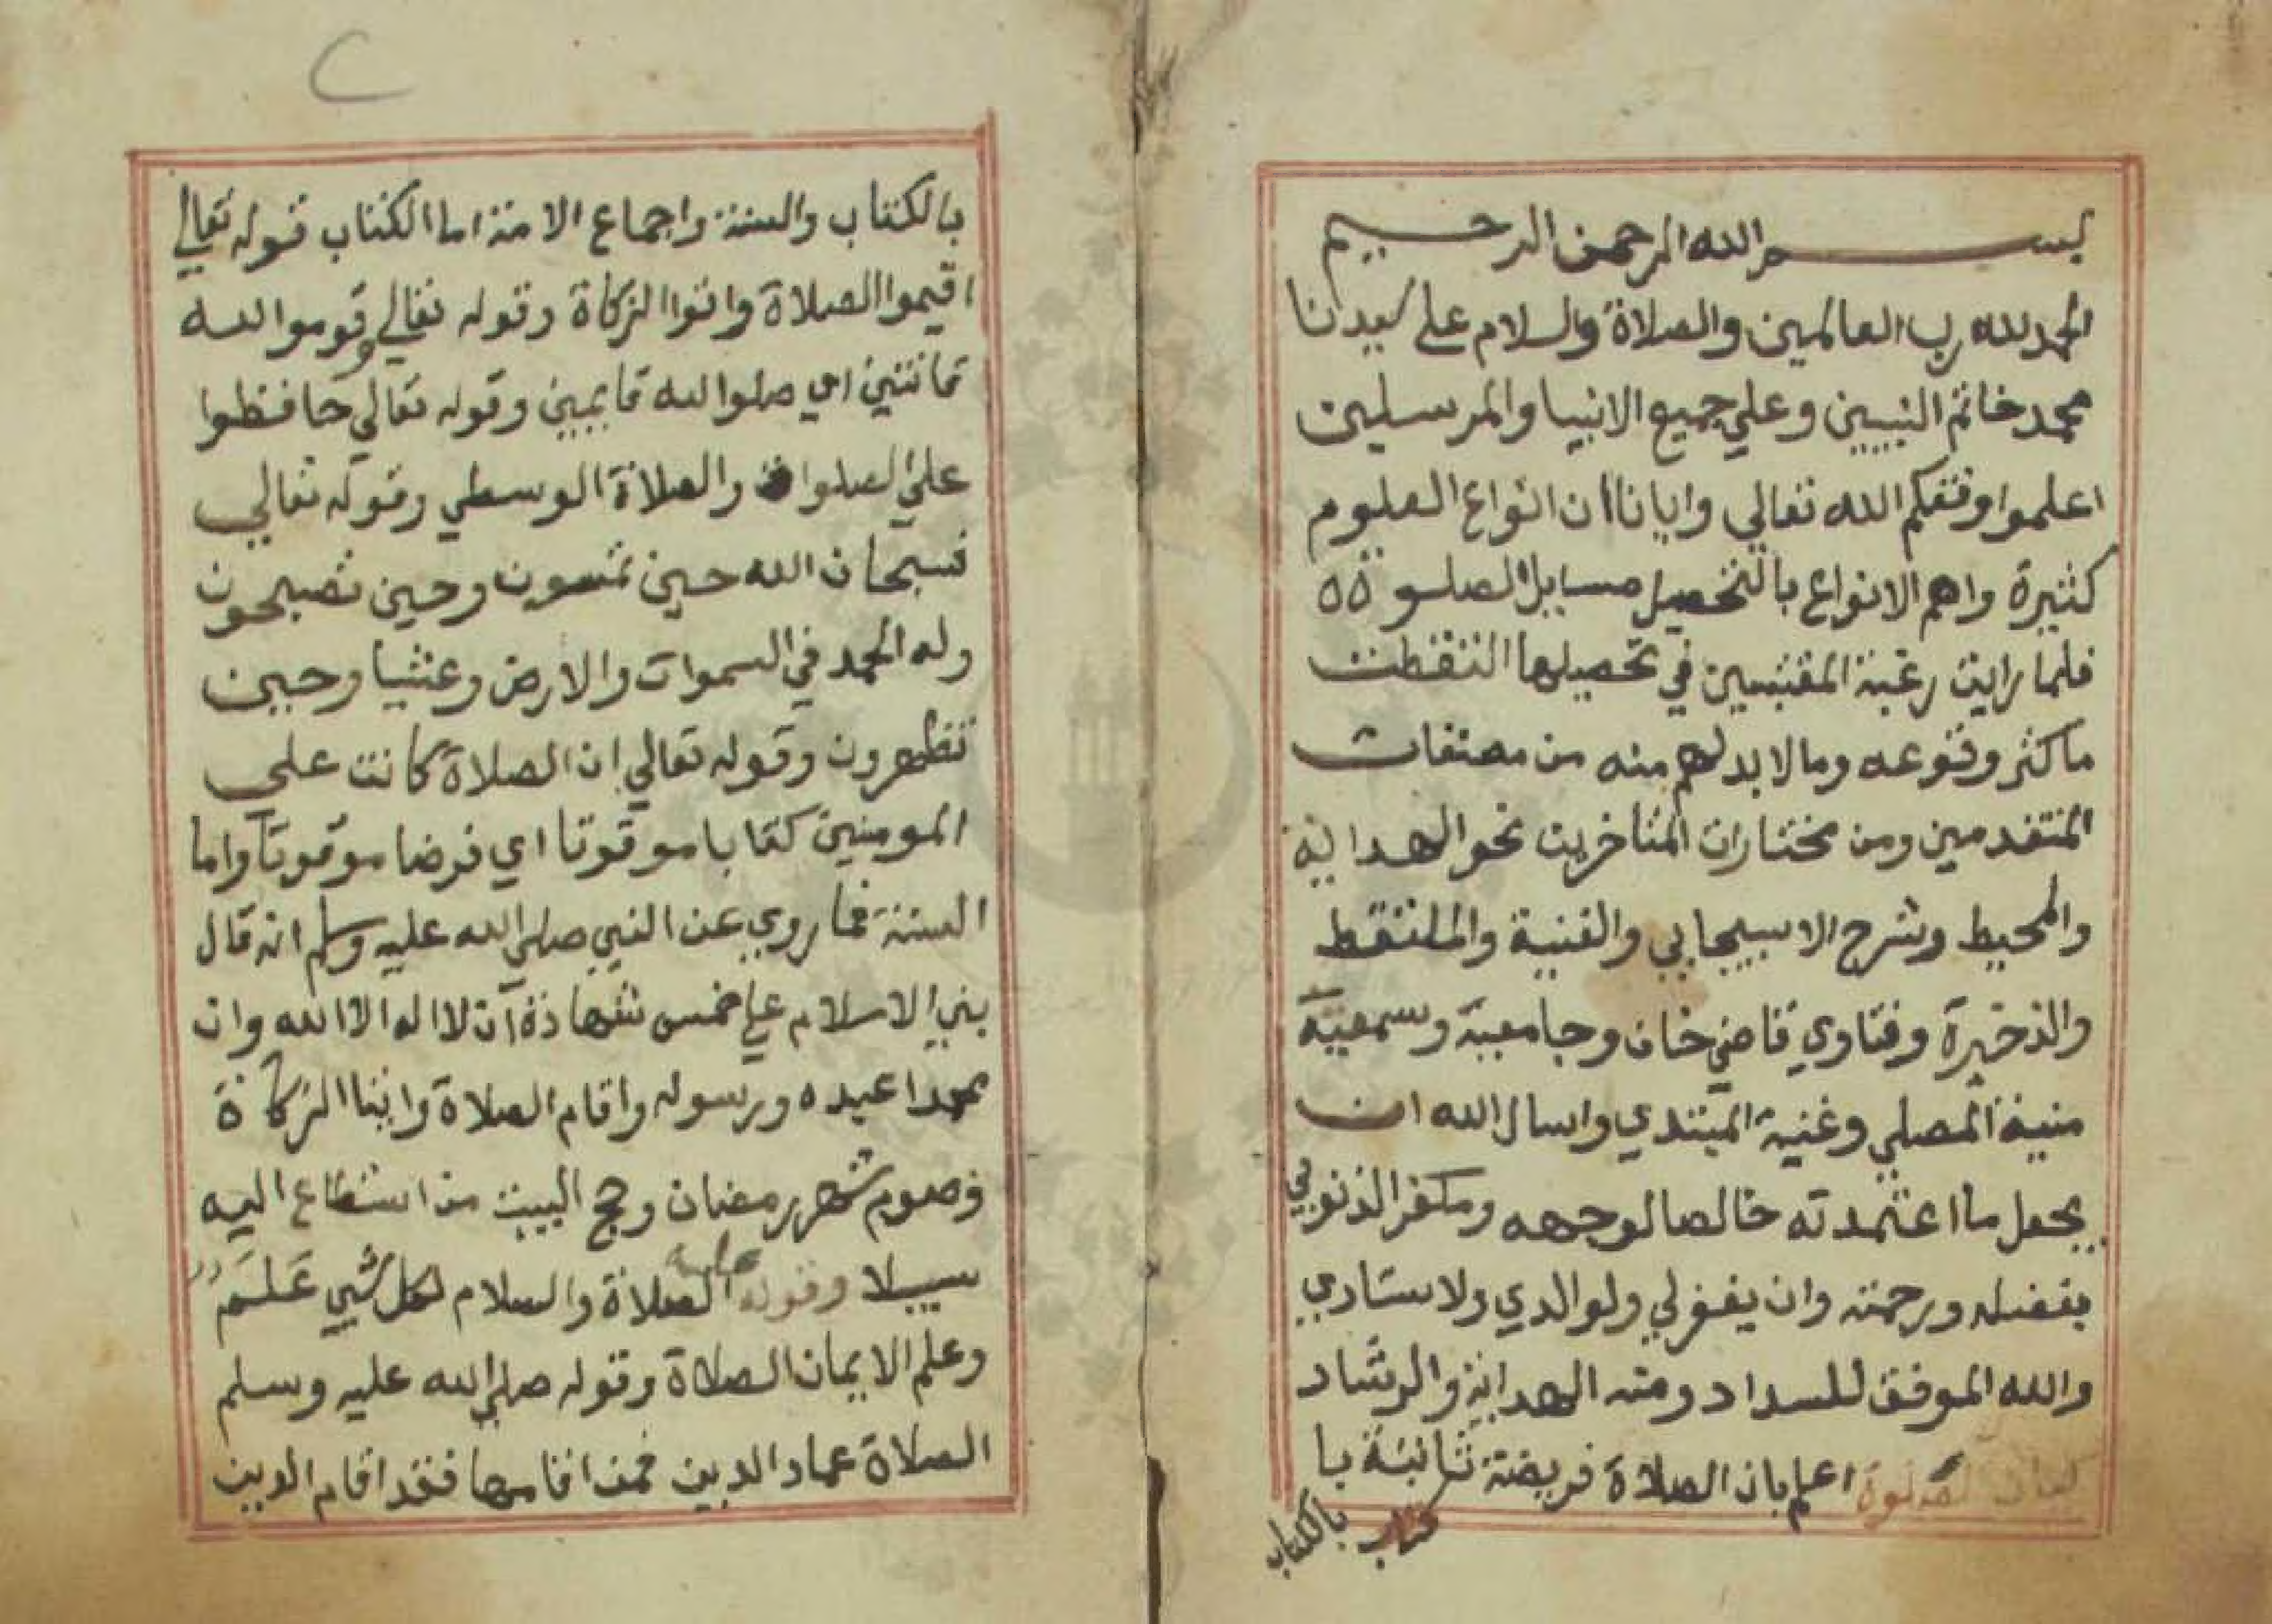 بسم الله الرحمن الرحيم
الحمد لله رب العالمين والصلاة والسلام على سيدنا
محمد خاتم النبيين وعلي جميع الانبيا والمرسلين
اعلموا وفقكم الله تعالي وايانا ان انواع العلوم
كثيرة واهم الانواع بالتحصيل مسايل الصلوة
فلما رايت رغبة المقتبسين في تحصيلها التقطت
ما كثر وقوعه وما لا بد لهم منه من مصنفات
المتقدمين ومن مختارات المتاخرين نحو الهداية
والمحيط وشرح الاسبيجابي والغنية والملتقط
والذخيرة وفتاوي قاضي خان وجامعيه وسميته
منية المصلي وغنية المبتدي واسال الله ان
يجعل ما اعتمدته خالصا لوجهه ومكفر الذنوبي
بفضله ورحمته وان يغفر لي ولوالدي ولاستادي
والله الموفق للسداد ومنه الهداية والرشاد
كتاب الصلوة اعلم بان الصلاة فريضة ثابتة با
بالكتاب
٢
بالكتاب والسنة واجماع الامة اما الكتاب قوله تعالي
اقيموا الصلاة واتوا الزكاة وقوله تعالي وقوموا لله
قانتين اي صلوا لله قايمين وقوله تعالي حافظوا
علي الصلوات والصلاة الوسطي وقوله تعالي
فسبحان الله حين تمسون وحين تصبحون
وله الحمد في السموات والارض وعشيا وحين
تظهرون وقوله تعالي ان الصلاة كانت علي
المومنين كتابا موقوتا اي فرضا موقوتا واما
السنة فما روي عن النبي صلي الله عليه وسلم انه قال
بني الاسلام علي خمس شهادة ان لا اله الا الله وان
محمدا عبده ورسوله واقام الصلاة وايتا الزكاة
وصوم شهر رمضان وحج البيت من استطاع اليه
سبيلا وقوله عليه الصلاة والسلام لكل شي علم
وعلم الايمان الصلاة وقوله صلي الله عليه وسلم
الصلاة عماد الدين فمن اقامها فقد اقام الدين